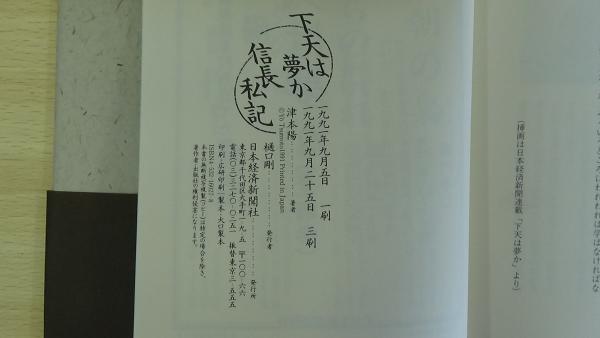 下天は
夢か
信長
私記
一九九一年九月五日　一刷
一九九一年九月二十五日　三刷
津本陽……著者
©Yo Tsumoto,1991 Printed in Japan
樋口剛……発行者
日本経済新聞社……発行所
東京都千代田区大手町一-九-五　〒一〇〇-六六
電話(〇三)三二七〇-〇二五一　振替東京三-五五五
印刷・広研印刷/製本・大口製本
本書の無断複写複製(コピー)は特定の場合を除き、
著作者・出版社の権利侵害になります。
(挿画は日本経済新聞連載「下天は夢か」より)